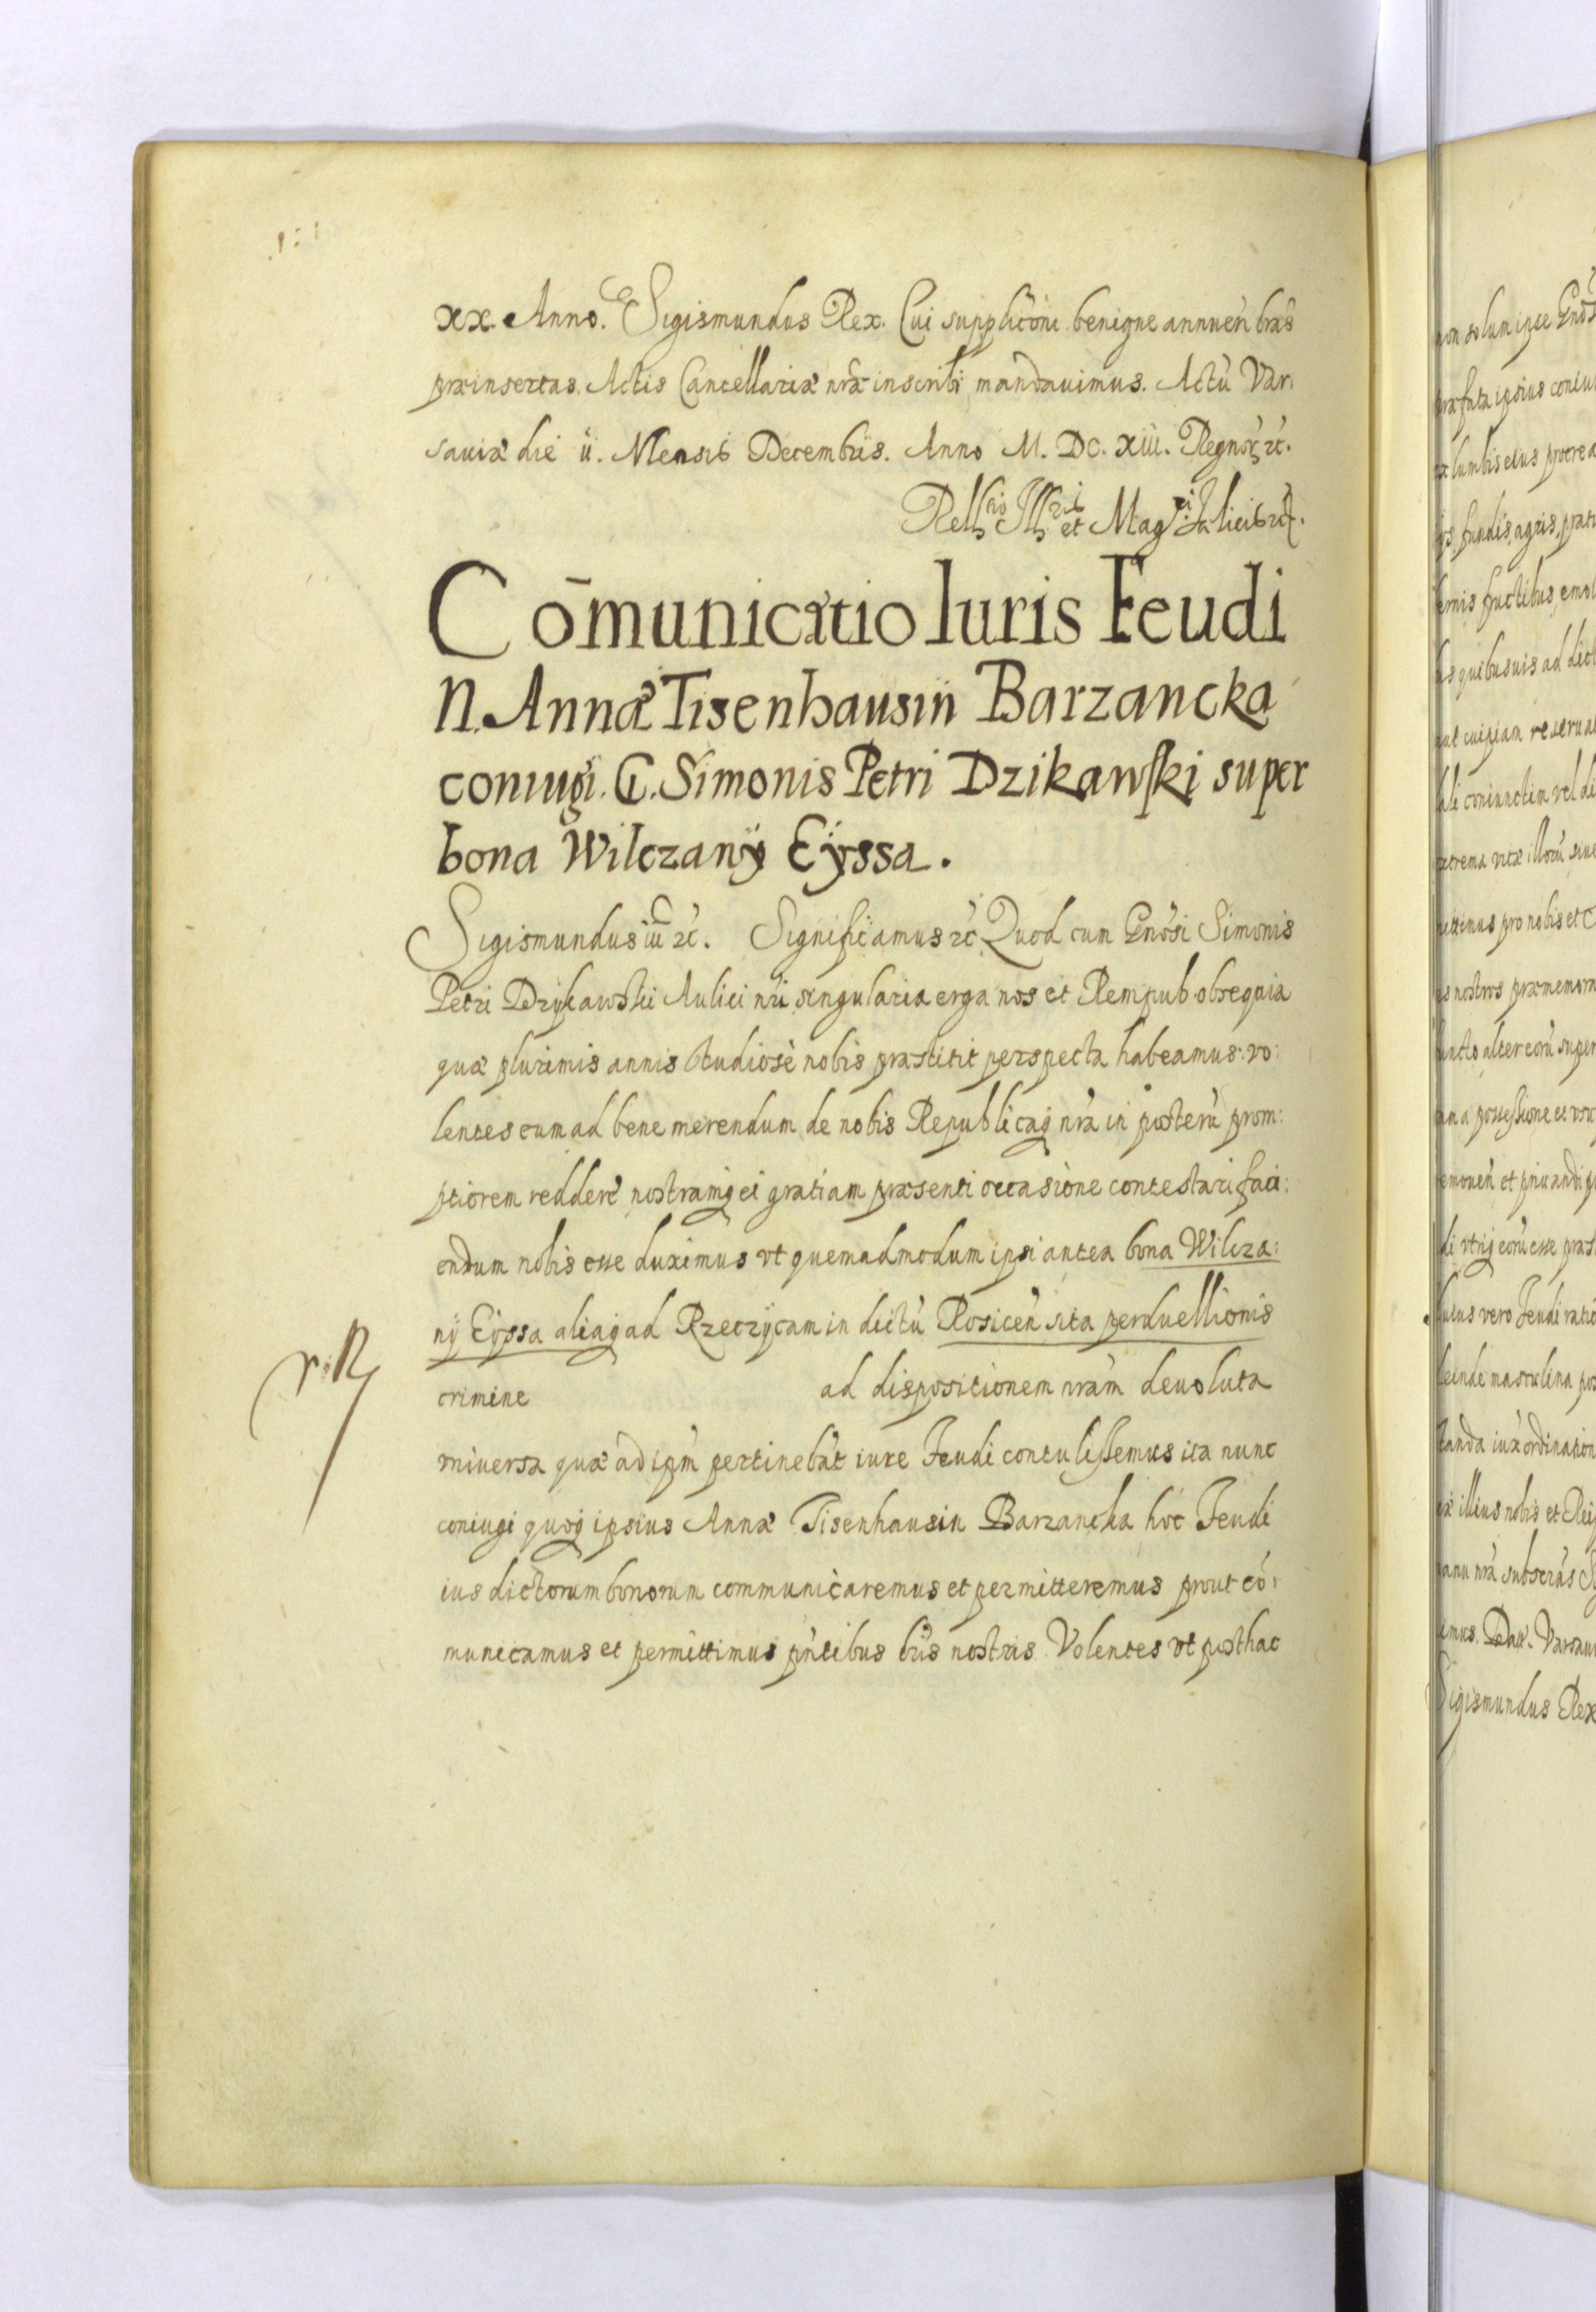 xx. Anno. Sigismundus Rex. Cui supplicōni benigne annuen̄ lras
præinsertas. Actis Cancellariæ nræ inscribi mandauimus. Actū Var:
sauiæ die ii. Mensis Decembris. Anno M. DC. XIII. Regnoꝝ ꝛc.
Comunicatio Iuris Feudi
N. Annæ Tisenhausin Barzancka
coniugi. G. Simonis Petri Dzikawski super
bona Wilczanÿ Eÿssa.
Sigismundus iii ꝛc. Significamus ꝛc Quod cum Gnosi Simonis
Petri Dzykawski Aulici nri singularia erga nos et Rempub obsequia
quæ plurimis annis studiosè nobis præstitit perspecta habeamus: vo:
lentes eum ad bene merendum de nobis Republicaq nra in posterū prom:
ptiorem reddere nostramq ei gratiam præsenti occasione contestari faci:
endum nobis esse duximus vt quemadmodum ipsi antea bona Wilcza:
nÿ Eÿssa aliaq ad Rzeczÿcam in dictū Rosicen̄ sita perduellionis
crimine ad dispositionem nram deuoluta
vniuersa quæ ad ipm pertinebāt iure Feudi contulissemus ita nunc
coniugi quoq ipsius Annæ Tisenhausin Barzancka hoc Feudi
ius dictorum bonorum communicaremus et permitteremus prout cō:
municamus et permittimus pntibus lris nostris. Volentes vt posthac